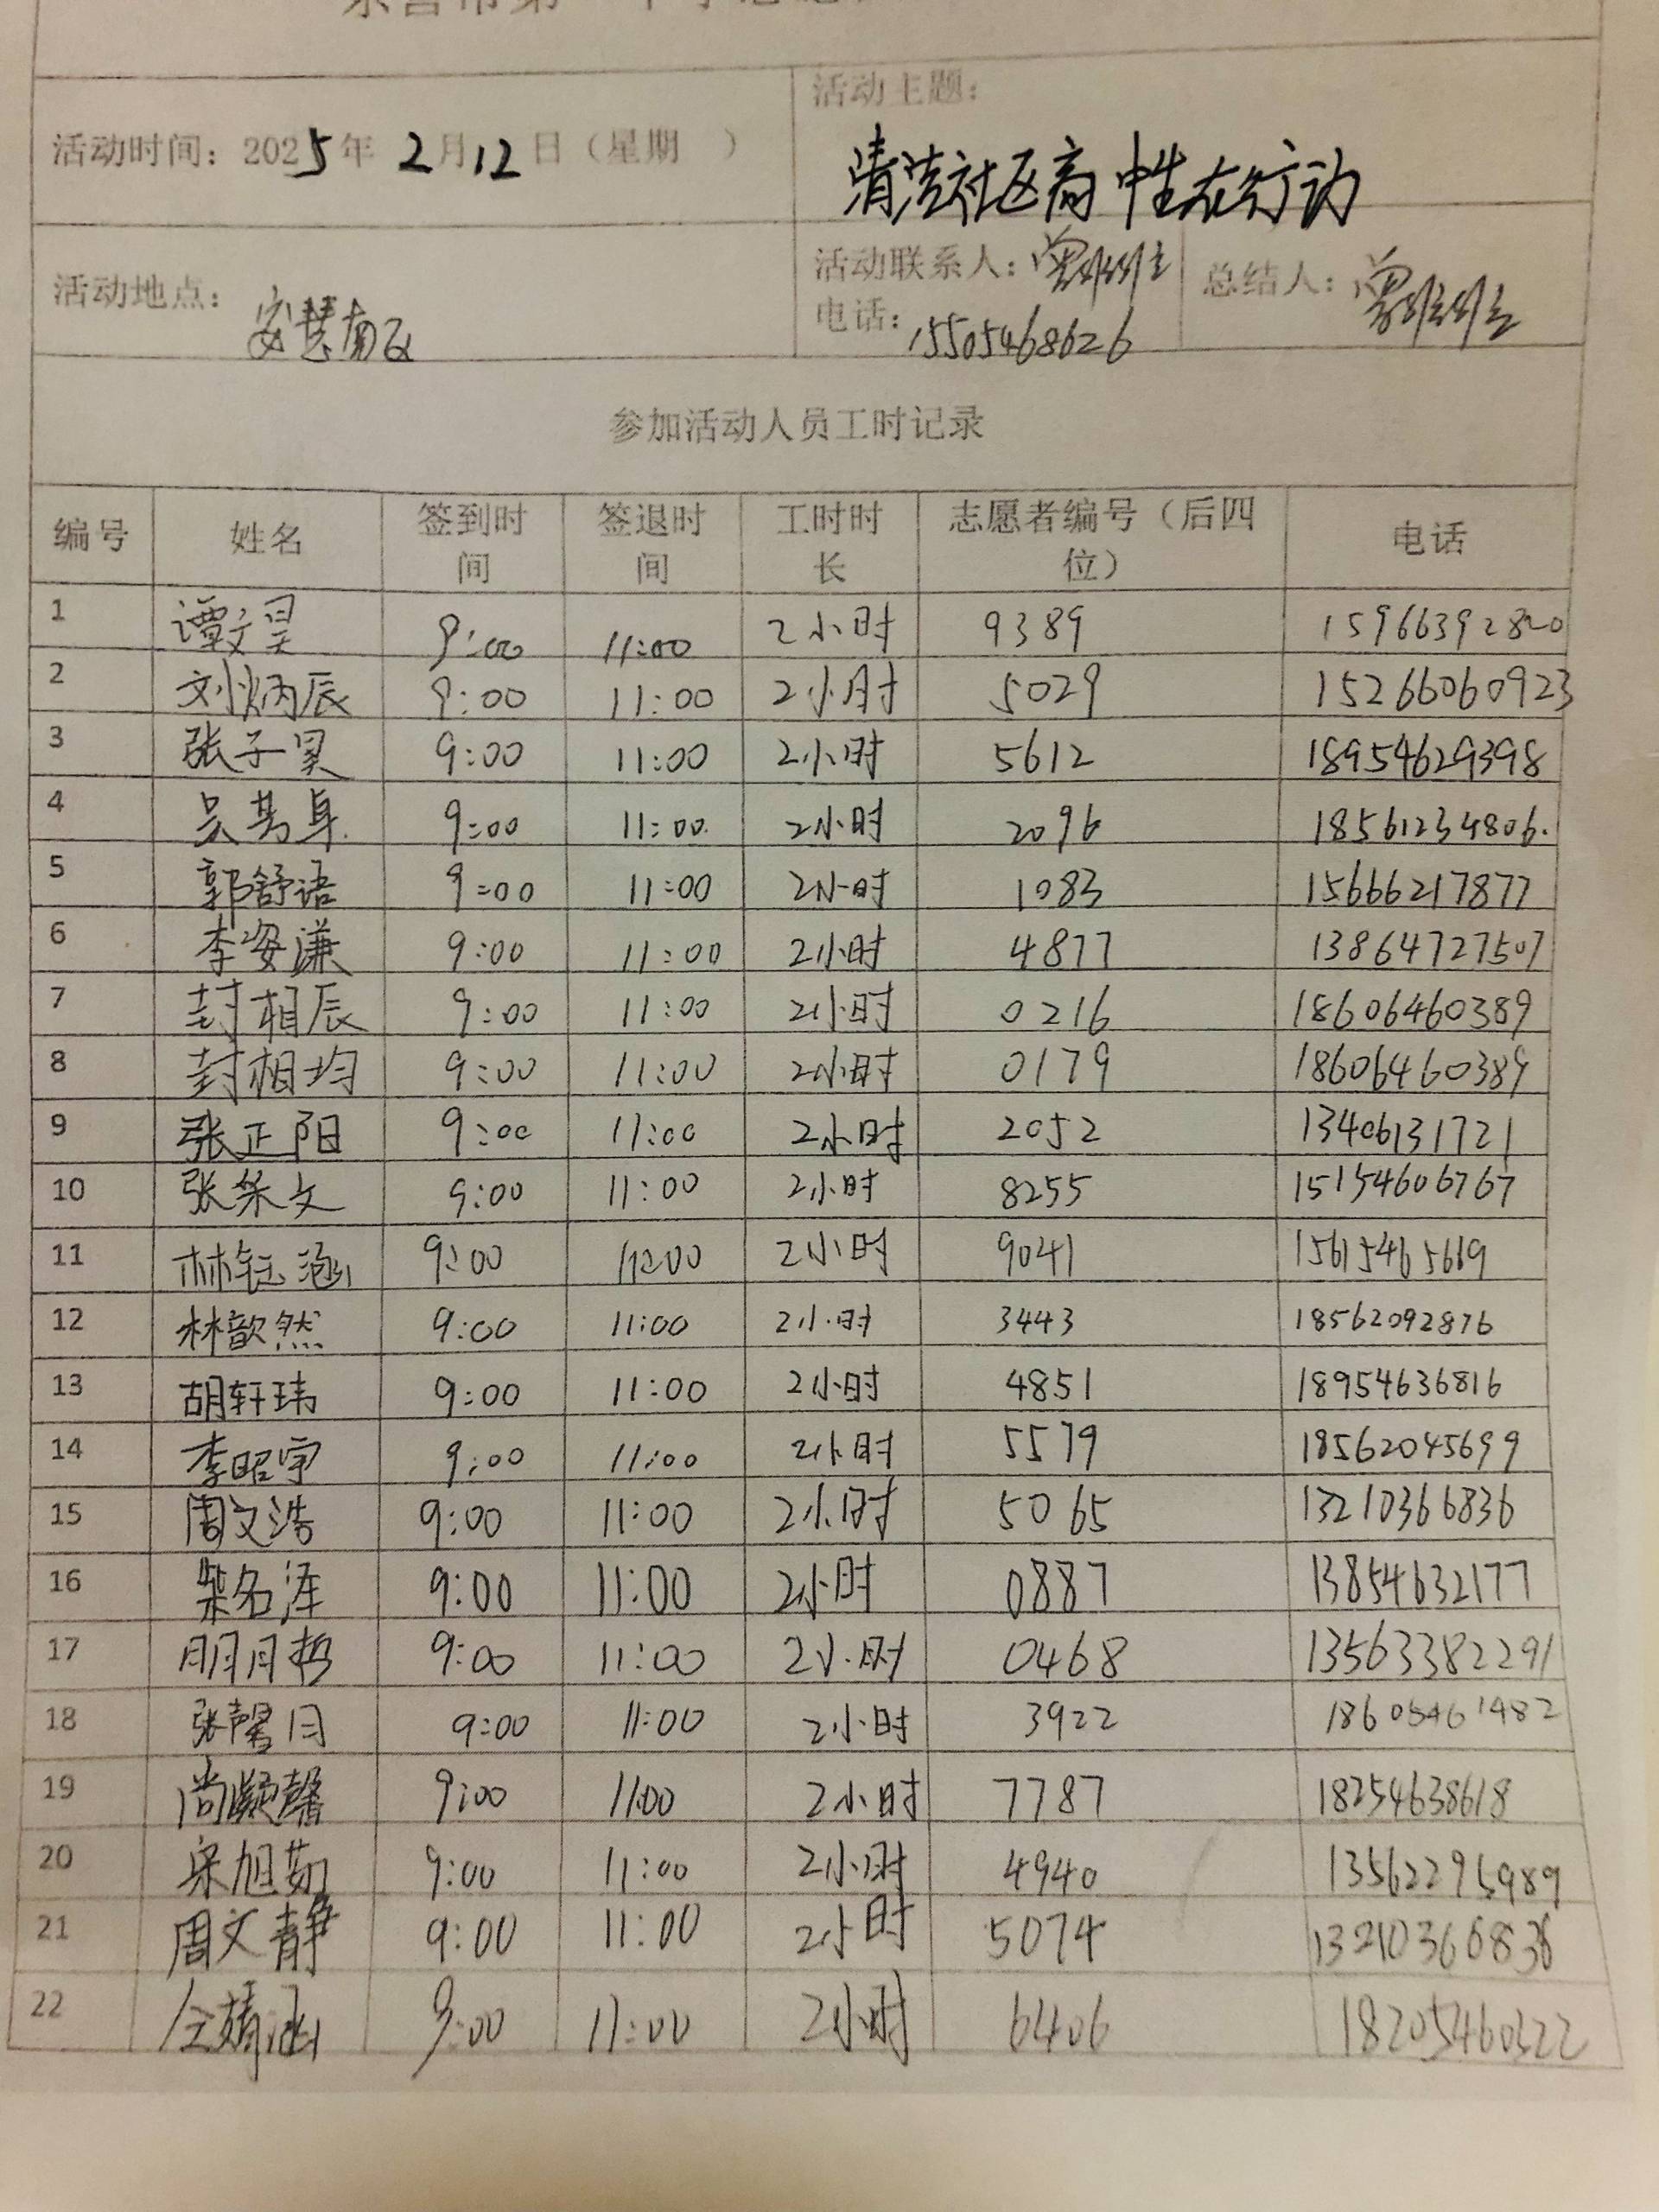 活动时间：2025年 2月12日（星期 ）
活动主题：
清洁社区高中生在行动
活动地点：安慧南区
活动联系人：
电话：15505468626
总结人：
参加活动人员工时记录
编号 姓名 签到时间 签退时间 工时时长 志愿者编号（后四位） 电话
1 谭文昊 9:00 11:00 2小时 9389 15966392820
2 刘炳辰 9:00 11:00 2小时 5029 15266060923
3 张子昊 9:00 11:00 2小时 5612 18954629398
4 9:00 11:00 2小时 2096 18561234806.
5 郭舒语 9:00 11:00 2小时 1083 15666217877
6 李姿谦 9:00 11:00 2小时 4877 13864727507
7 封相辰 9:00 11:00 2小时 0216 18606460389
8 封相均 9:00 11:00 2小时 0179 18606460389
9 张正阳 9:00 11:00 2小时 2052 13406131721
10 9:00 11:00 2小时 8255 15154606767
11 林钰涵 9:00 11:00 2小时 9041 15615465619
12 林歆然 9:00 11:00 2小时 3443 18562092876
13 胡轩玮 9:00 11:00 2小时 4851 18954636816
14 李昭宇 9:00 11:00 2小时 5579 18562045699
15 周文浩 9:00 11:00 2小时 5065 13210366836
16 柴名泽 9:00 11:00 2小时 0887 13854632177
17 明月哲 9:00 11:00 2小时 0468 13563382291
18 张馨月 9:00 11:00 2小时 3922 18605461482
19 尚凝馨 9:00 11:00 2小时 7787 18254638618
20 宋旭茹 9:00 11:00 2小时 4940 13562295989
21 周文静 9:00 11:00 2小时 5074 13210366836
22 仝婧涵 9:00 11:00 2小时 6406 18205460322